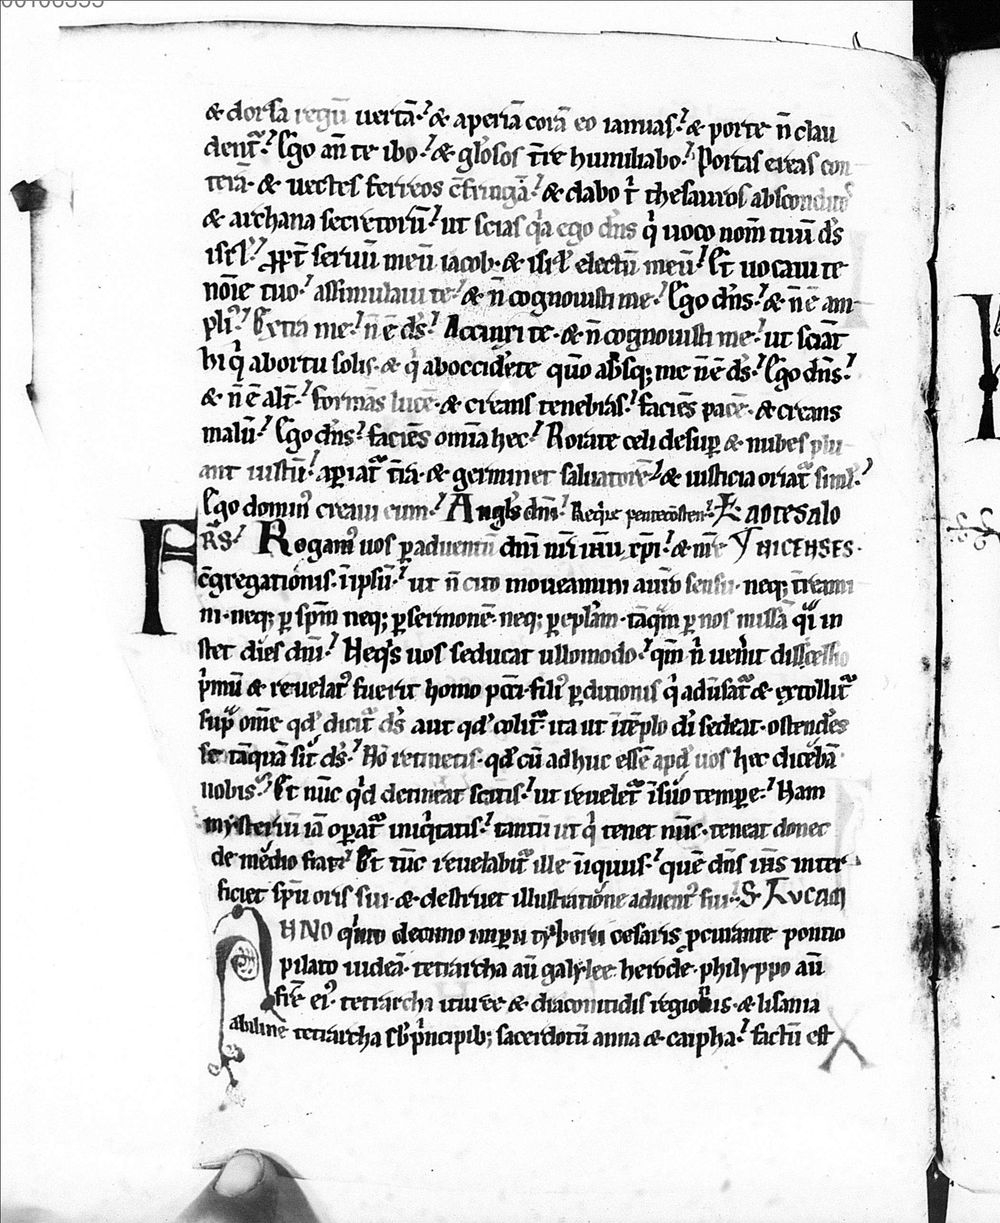 & dorsa regū uertā. & aperiā corā eo ianuas. & porte n̄ clau
dent᷑. Ego an̄ te ibo. & gl̓osos t̄re humiliabo. Portas ereas con
terā. & uectes ferreos c̄fringā. & dabo t̓ thesauros abscondito᷒
& archana secretorū. ut scias q̓a ego dn̄s q̓ uoco nom̄ tuū d̄s
isrl̓. ꝓpt̓ seruū meū iacob. & isrl̓ electū meū. Et uocaui te
noīe tuo. assimulaui te. & n̄ cognouisti me. Ego dn̄s. & n̄ ē am
pli᷒. Extra me. n̄ ē d̄s. Accinxi te. & n̄ cognouisti me. ut sciāt
hi q̓ abortu solis. & q̓ aboccid̓ete quō absq; me n̄ ē d̄s. Ego dn̄s.
& n̄ ē alt̓. formās lucē. & creans tenebras. faciēs pacē. & creans
malū. Ego dn̄s. faciēs omīa hec. Rorate celi desuꝑ & nubes plu
ant iustū. aꝑiat᷑ t̄ra. & germinet saluatorē. & iusticia oriat᷑ simł.
Ego domin᷒ creaui eum. Angl̓s dn̄i. Req̓re pentecosten. E ad tesalo
FRS. Rogam᷒ uos ꝑ aduentū dn̄i nr̄i ih̄u xp̄i. & nr̄e NICENSES.
c̄gregationis. ī ipsū. ut n̄ cito moueamini auro sensu. neq; t̄reami
ni. neq; ꝑ sp̄m neq; ꝑ sermonē. neq; ꝑ epl̄am. tāq̄m ꝑ nos missā q̓i in
stet dies dn̄i. Neq̓s uos seducat ullomodo. qm̄ n̓ uen̓it discessio
p̓mū & reuelat᷒ fuerit homo pcc̄i. fili᷒ ꝑditionis q̓ adu̓sat᷑ & extollit᷑
sup̄ om̄e qd̓ dicit᷑ d̄s aut qd̓ colit᷑. ita ut ī tēplo di̓ sedeat. ostend̓es
se tāquā sit d̄s. Nō retinetis. qd̓ cū adhuc essē apd̓ uos hec dicebā
uobis. Et nūc q̓d detineat scitis. ut reuelet᷑ ī suo tempore. Nam
mysteriū iā oꝑat᷑ iniq̓tatis. tantū ut q̓ tenet nūc. teneat donec
de medio fiat. Et tūc reuelabit᷑ ille īiquus. quē dn̄s ih̄s inter
ficiet sp̄u oris sui. & destruet illustratione aduent᷒ sui. S. LUCAM
ANNO q̓nto decimo imperii tyberii cesaris ꝓcurante pontio
pilato iudeā. tetrarcha aū galylee herode. philyppo aū
fr̄e ei᷒. tetrarcha ituree & diaconitidis regionis. & lisania
abiline tetrarcha sb̓ p̓ncipib; sacerdotū anna & caipha. factū est